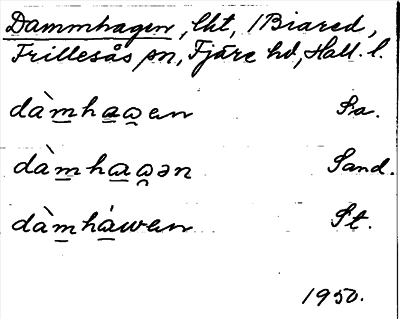 Dammhagen, lht, 1 Biared,
Frillesås sn, Fjäre hd, Hall. l.
dàm̲ha̲w̯en Sa.
dàm̲ha̲ω̯ən Sand.
dàm̲há̲wen St.
1950.